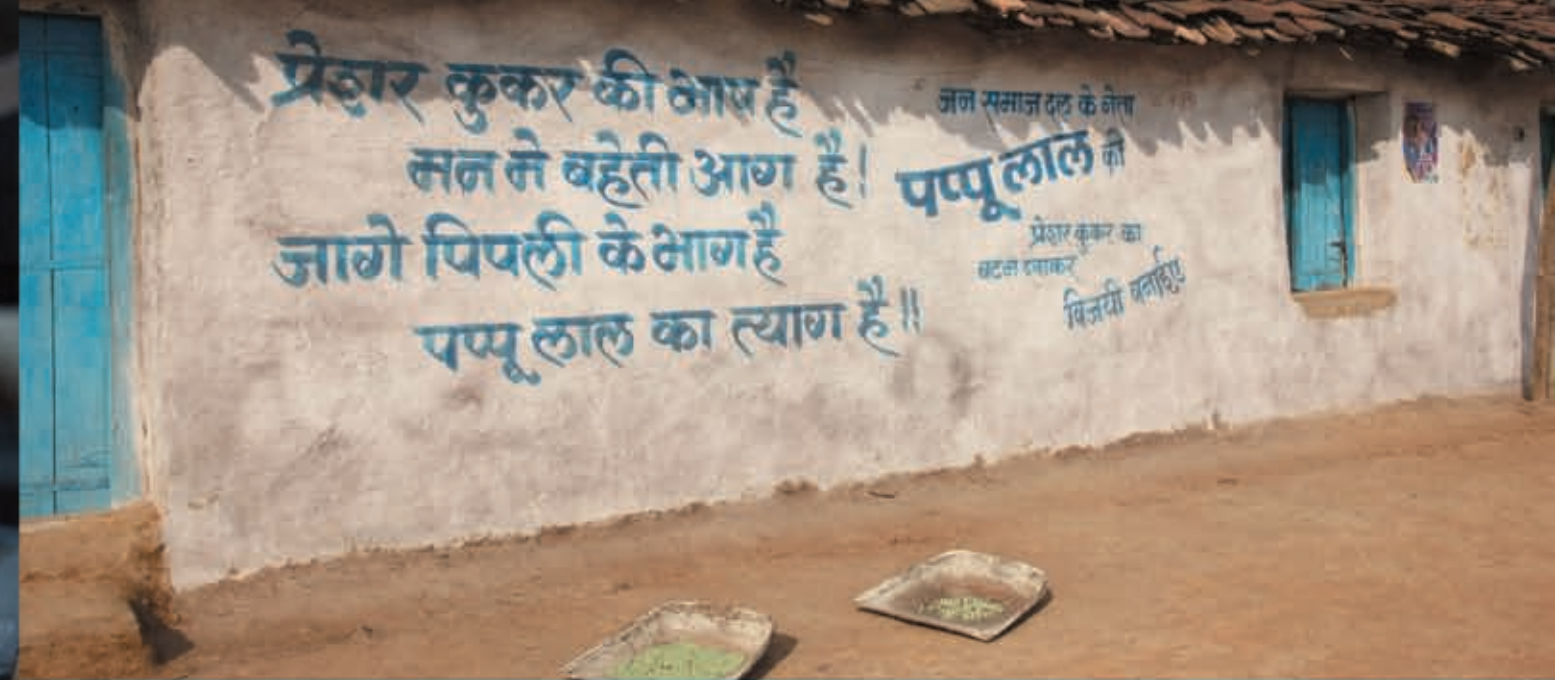 प्रेशर कुकर की भाप है
मन मे बहेती आग है!
जागे पिपली के भाग है
पप्पू लाल का त्याग है!!
जन समाज दल के नेता
पप्पू लाल को
प्रेशर कुकर का
बटन दबाकर
विजयी बनाईए